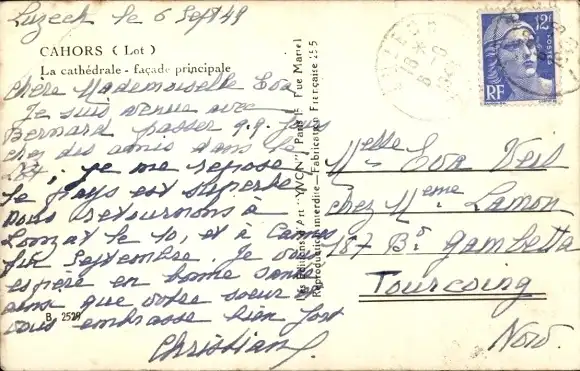 Luzech le 6 Sept 49
CAHORS (Lot)
La cathédrale - façade principale
Chère Mademoiselle Eva
Je suis venue avec
Bernard passer q.q. jours
chez des amis dans le
Lot, je me repose
le pays est superbe
Nous retournons à
le 10, et à
fin Septembre. Je vous
espère en bonne santé
ainsi que votre soeur et
vous embrasse bien fort
Christian
B. 2529
Les Editions d'Art "YVON", Paris 15 Rue Martel
Reproduction interdite - Fabrication Française
12F
POSTES
RF
Melle Eva Weil
chez Mme Lamon
187 Bd Gambetta
Tourcoing
Nord.